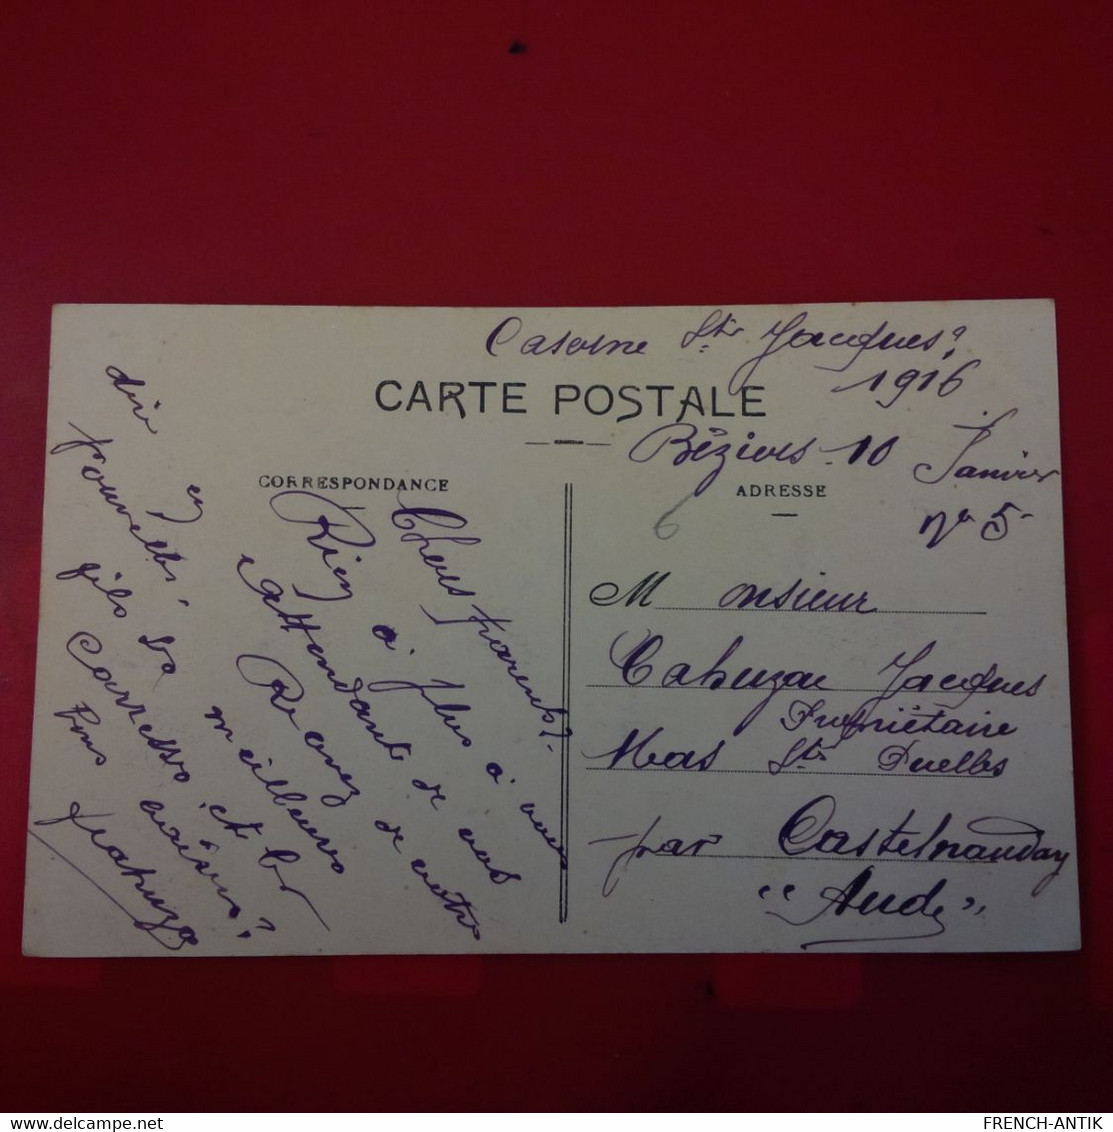 Caserne St Jacques
1916
CARTE POSTALE
Béziers 10 Janvier
CORRESPONDANCE
ADRESSE
6
n° 5
Chers parents.
Rien à plus à vous
dire en attendant de vos
nouvelles. Recevez de votre
fils sa meilleures
Caresses et br
Bons baisers
M onsieur
Cahuzac Jacques
Propriétaire
Mas Stes Puelles
par Castelnaudary
"Aude"
FRENCH-ANTIK